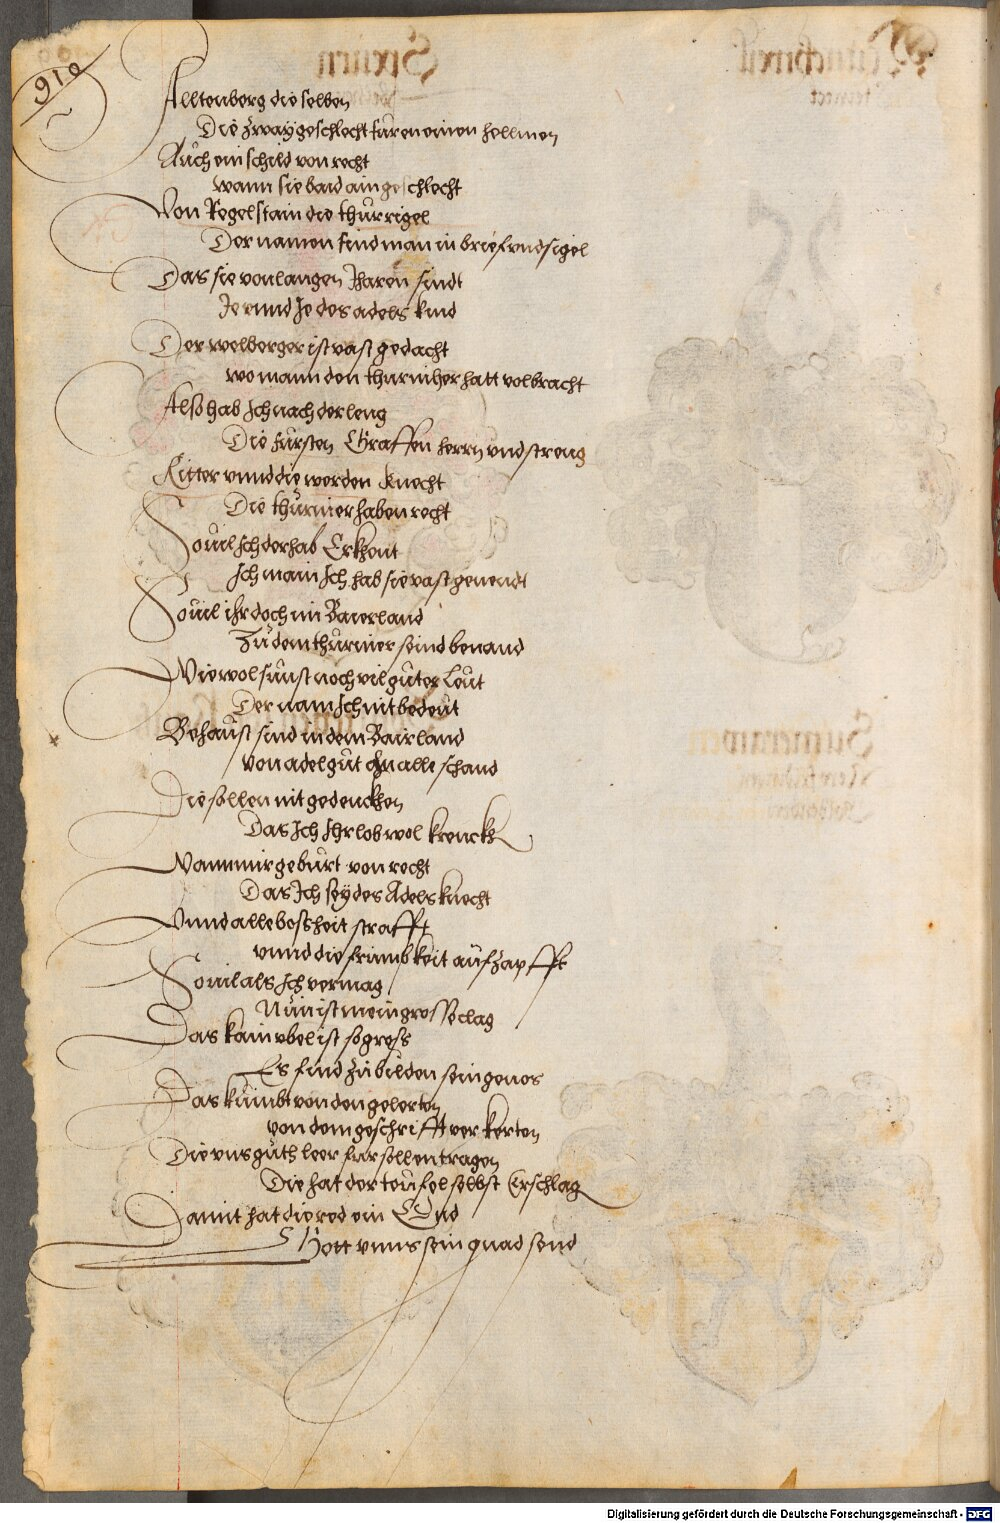 910
Alltenberg die selben
Die zway geschlecht füren einen hellmen
Auch ein schild von recht
wann sie baid ain geschlecht
Von Regelstain die thürrigel
Der namen find man in brief vnd sigel
Das sie von langen Jharen sindt
Je vnnd Je des adels kind
Der welberger ist vast gedacht
wo mann den thurniher hatt volbracht
Also hab Ich nach der leng
Die fürsten Graffen herrn vnd streng
Ritter vnnd die werden knecht
Die thürnier haben recht
Souil Ich der hab Erkhent
Ich main Ich hab sie vast genendt
Souil ihr doch im Baierland
Zu dem thürnier seind benand
Wiewol sünst noch vil güter Leüt
Der nam Ich nit bedeüt
Behaüst sind in dem Bairland
von adel gut on alle schand
Die sollen nit gedenckhen
Das Ich Ihr lob wol krenckh
Wann mir gebürt von recht
Das Ich sey des Adels knecht
Vnnd alle bosheit strafft
vnnd die frümbkeit aufzapfft
Souil als Ich vermag
Nün ist mein grosse clag
Das kain vbel ist so gross
Es find zu bilden sein genos
Das kümbt von den gelerten
von dem geschrifft verkerten
Die vns guth leer far sollen tragen
Die hat der teüfel selbst Erschlag
Damit hat die red ein End
Gott vnns sein gnad send
Digitalisierung gefördert durch die Deutsche Forschungsgemeinschaft - DFG